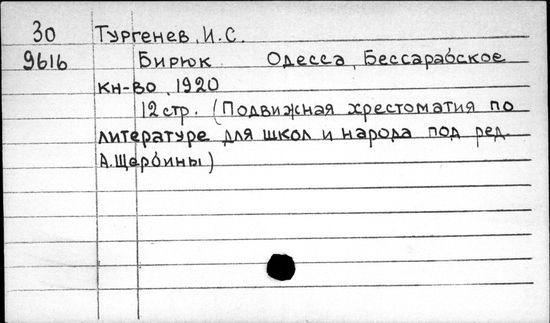 30 Тургенев, И.С.
9616 Бирюк Одесса, Бессарабское
кн-во, 1920
12 стр. (Подвижная хрестоматия по
литературе для школ и народа под ред.
А.Щербины)